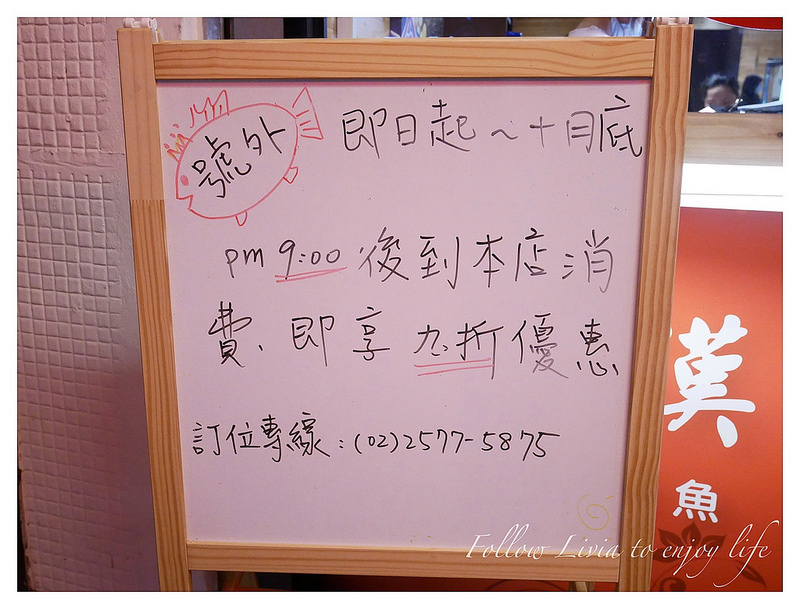 號外
即日起～十月底
pm 9:00 後到本店消
費、即享九折優惠
訂位專線：(02)2577-5875
漢
魚
Follow Livia to enjoy life